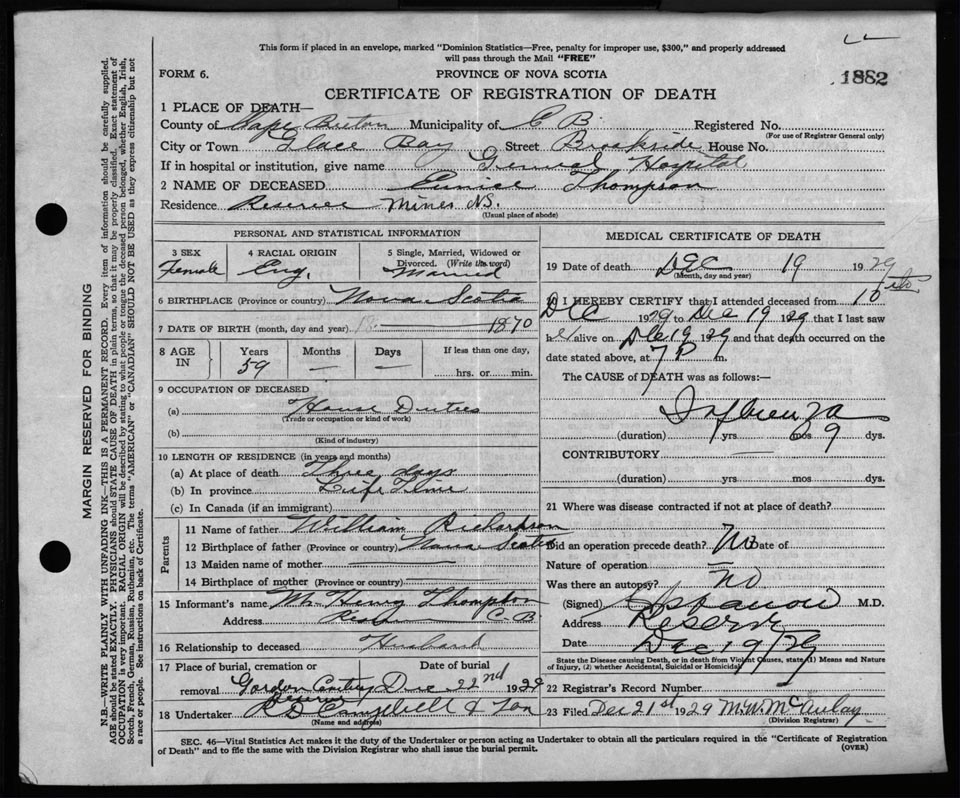 This form if placed in an envelope, marked "Dominion Statistics—Free, penalty for improper use, $300," and properly addressed
will pass through the Mail "FREE"
FORM 6.
PROVINCE OF NOVA SCOTIA
1882
CERTIFICATE OF REGISTRATION OF DEATH
1 PLACE OF DEATH—
County of Cape Breton Municipality of C B. Registered No.
(For use of Registrar General only)
City or Town Glace Bay Street Brookside House No.
If in hospital or institution, give name General Hospital
2 NAME OF DECEASED Eunice Thompson
Residence Reserve Mines N.S.
(Usual place of abode)
PERSONAL AND STATISTICAL INFORMATION
3 SEX Female
4 RACIAL ORIGIN Eng.
5 Single, Married, Widowed or Divorced. (Write the word) Married
6 BIRTHPLACE (Province or country) Nova Scotia
7 DATE OF BIRTH (month, day and year) 18 — 1870
8 AGE IN Years 59 Months — Days — If less than one day, hrs. or min.
9 OCCUPATION OF DECEASED
(a) House Duties
(Trade or occupation or kind of work)
(b)
(Kind of industry)
10 LENGTH OF RESIDENCE (in years and months)
(a) At place of death Three days
(b) In province Life Time
(c) In Canada (if an immigrant)
Parents
11 Name of father William Richardson
12 Birthplace of father (Province or country) Nova Scotia
13 Maiden name of mother —
14 Birthplace of mother (Province or country) —
15 Informant's name Mr Henry Thompson
Address Reserve C-B
16 Relationship to deceased Husband
17 Place of burial, cremation or removal
Date of burial
Dec 22nd 1929
18 Undertaker Campbell & Son
(Name and address)
MEDICAL CERTIFICATE OF DEATH
19 Date of death DEC 19 1929
(Month, day and year)
20 I HEREBY CERTIFY that I attended deceased from 10
Dec 1929 to Dec 19 1929 that I last saw
her alive on Dec 19 1929 and that death occurred on the
date stated above, at 7 P m.
The CAUSE of DEATH was as follows:—
Influenza
(duration) yrs mos 9 dys.
CONTRIBUTORY —
(duration) yrs mos dys.
21 Where was disease contracted if not at place of death?
Did an operation precede death? No Date of
Nature of operation —
Was there an autopsy? no
(Signed) M.D.
Address Reserve
Date Dec 19/29
State the Disease causing Death, or in death from Violent Causes, state (1) Means and Nature
of Injury, (2) whether Accidental, Suicidal or Homicidal
22 Registrar's Record Number
23 Filed Dec 21st 1929 M. W. McAulay
(Division Registrar)
SEC. 46—Vital Statistics Act makes it the duty of the Undertaker or person acting as Undertaker to obtain all the particulars required in the "Certificate of Registration
of Death" and to file the same with the Division Registrar who shall issue the burial permit.
(OVER)
MARGIN RESERVED FOR BINDING
N.B.—WRITE PLAINLY WITH UNFADING INK—THIS IS A PERMANENT RECORD. Every item of information should be carefully supplied.
AGE should be stated EXACTLY. PHYSICIANS should STATE CAUSE OF DEATH in plain terms, so that it may be properly classified. Exact statement of
OCCUPATION is very important. RACIAL ORIGIN will be described by stating to what people or tongue the deceased person belonged, whether English, Irish,
Scotch, French, German, Russian, Ruthenian, etc. The terms "AMERICAN" or "CANADIAN" SHOULD NOT BE USED as they express citizenship but not
a race or people. See instructions on back of Certificate.